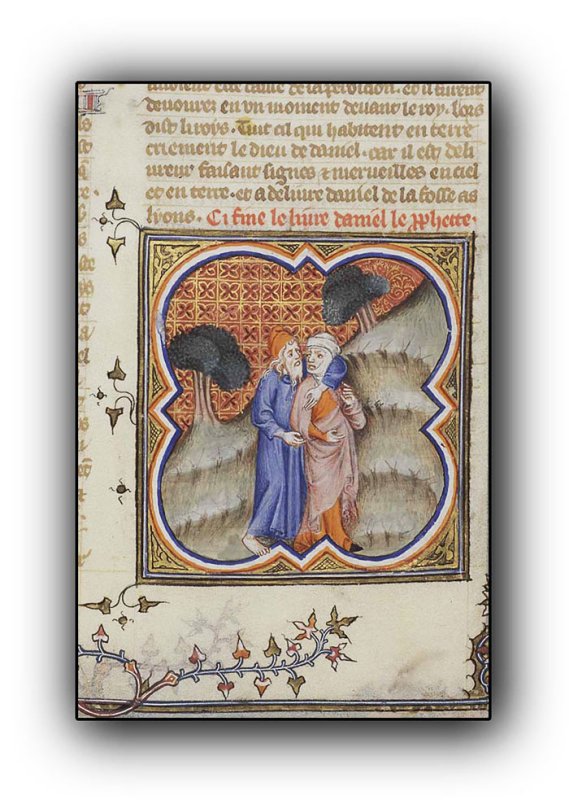 auoient este cause de sa perdicion. et il furent
deuourez en vn moment deuant le roy. lors
dist li roys. Tuit cil qui habitent en terre
criement le dieu de daniel. car il est deli
ureur faisant signes ⁊ merueilles en ciel
et en terre. et a deliure daniel de la fosse as
lyons. Ci fine le liure daniel le pphette.